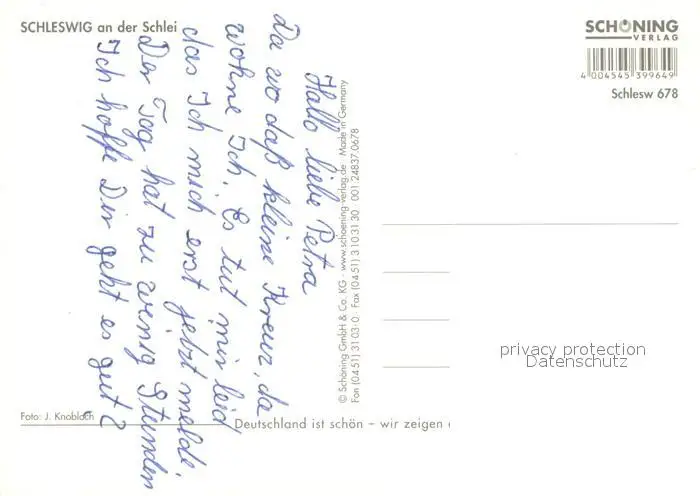 SCHLESWIG an der Schlei
Hallo liebe Petra
Da wo daß kleine Kreuz, da
wohne Ich. Es tut mir leid
das Ich mich erst jetzt melde.
Der Tag hat zu wenig Stunden
Ich hoffe Dir geht es gut?
Foto: J. Knobloch
© Schöning GmbH & Co. KG · www.schoening-verlag.de · Made in Germany
Fon (04 51) 31 03-0 · Fax (04 51) 3 10 31 30 · 001.24837.0678
Deutschland ist schön – wir zeigen
SCHÖNING
VERLAG
4 004545 399649
Schlesw 678
privacy protection
Datenschutz